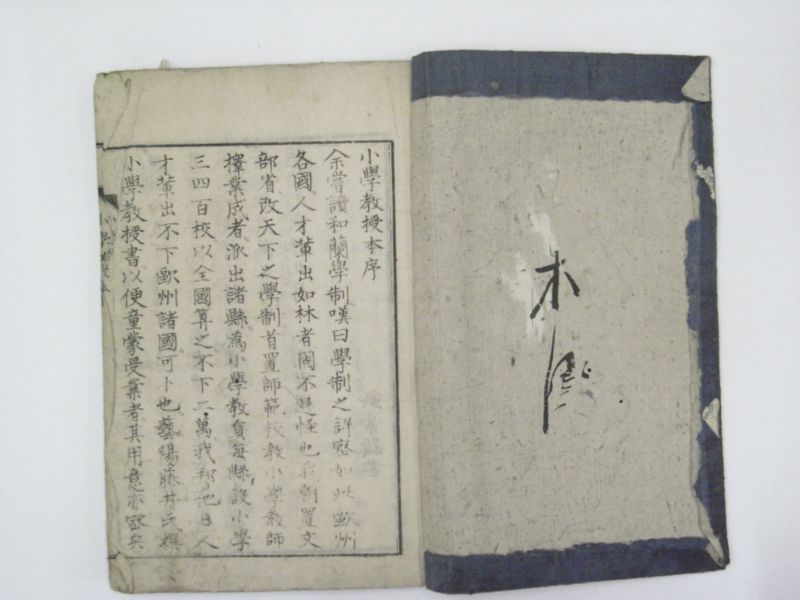 木
小學教授本序
余嘗讀和蘭學制嘆曰學制之詳密如此歐州
各國人才輩出如林者固不足怪也我朝置文
部省改天下之學制首置師範校教小學教師
擇業成者派出諸縣為小學教員每縣設小學
三四百校以全國算之不下二萬我邦他日人
才輩出不下歐州諸國可卜也藝陽藤井氏撰
小學教授書以便童蒙受業者其用意亦密矣